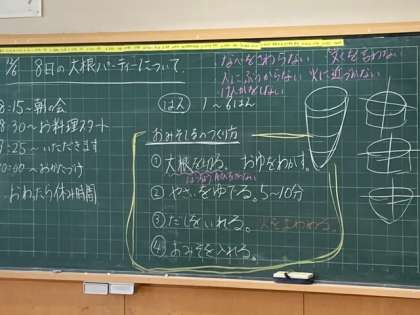 8日の大根パーティーについて
なべをさわらない
人にぶつからない 火に近づかない
けんかをしない
8:15~朝の会
8:30~お料理スタート
9:25~いただきます
10:00~おかたづけ
おわったら休み時間
はん 1~6はん
おみそしるのつくり方
① 大根を切る。 おゆをわかす。
② やさいをゆでる。5~10分
③ だしをいれる。
④ おみそを入れる。